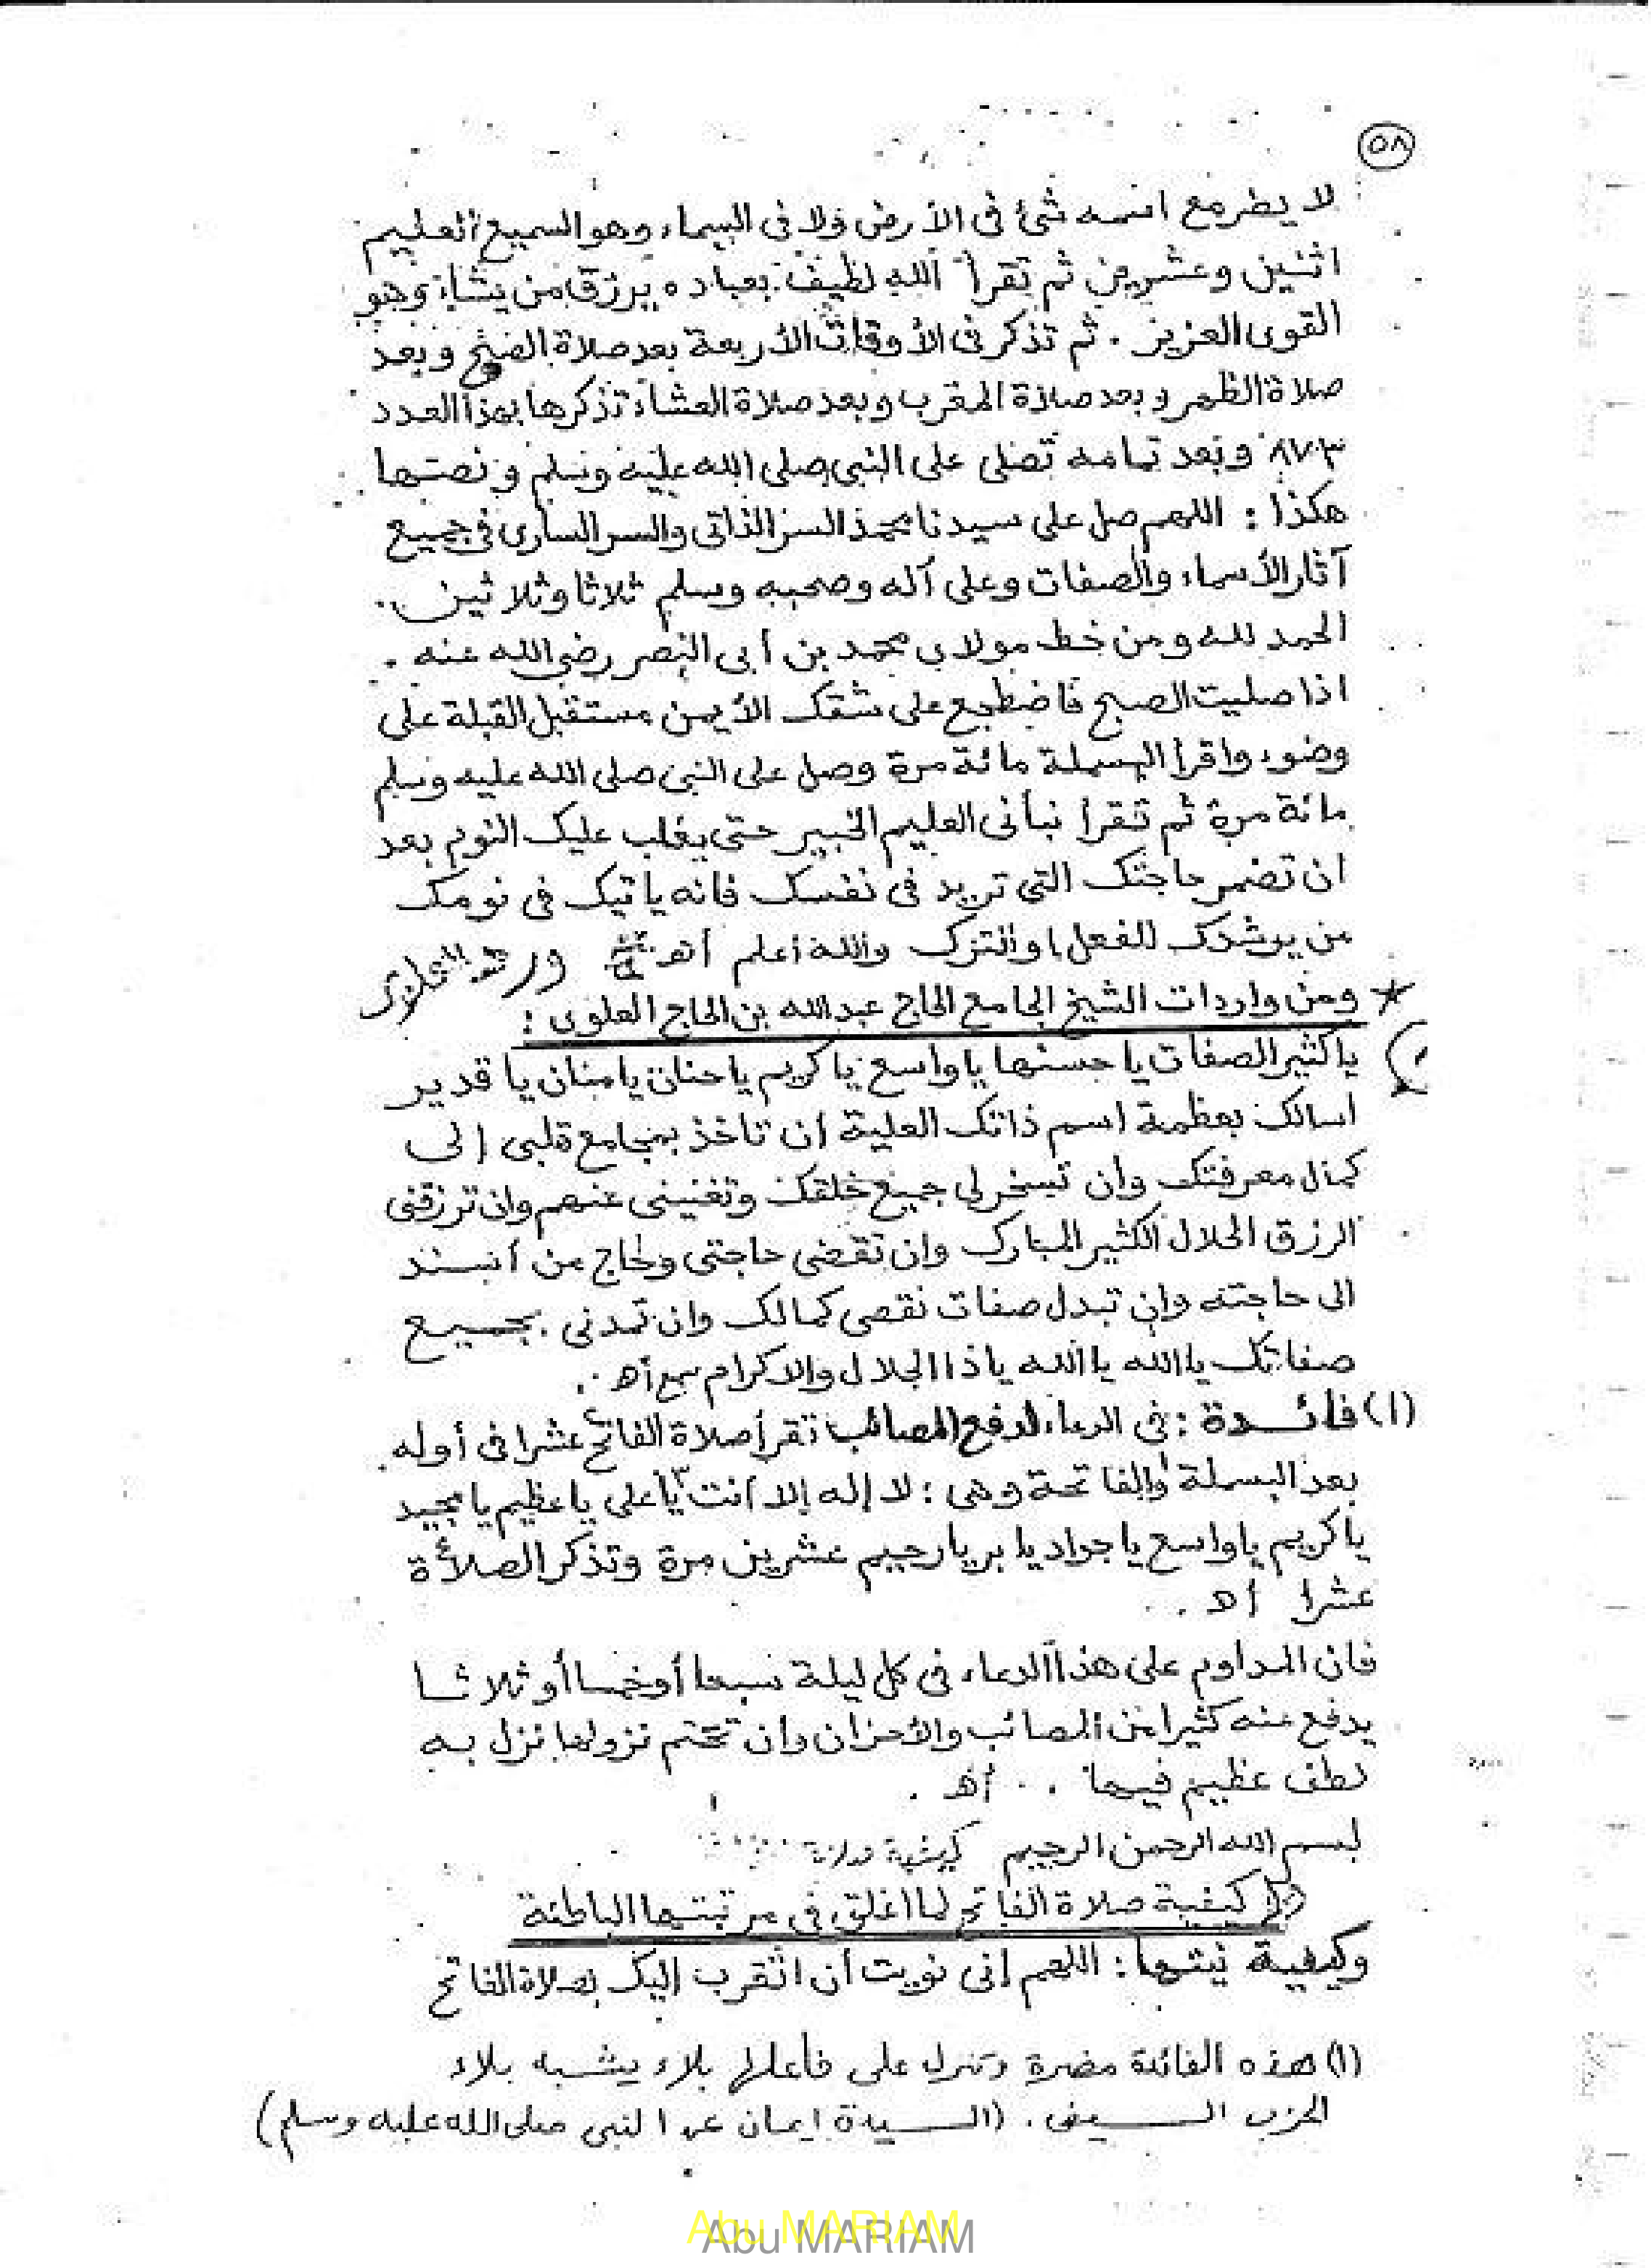 ٥٨
لا يضر مع اسمه شئ فى الأرض ولا فى السماء وهو السميع العليم
اثنين وعشرين ثم تقرأ الله لطيف بعباده يرزق من يشاء وهو
القوى العزيز . ثم تذكر فى الأوقات الأربعة بعد صلاة الصبح وبعد
صلاة الظهر وبعد صلاة المغرب وبعد صلاة العشاء تذكرها بهذا العدد
وبعد تمامه تصلى على النبى صلى الله عليه وسلم ونصها
هكذا : اللهم صل على سيدنا محمد السر الذاتى والسر السارى فى جميع
آثار الأسماء والصفات وعلى آله وصحبه وسلم ثلاثا وثلاثين ..
الحمد لله ومن خط مولاى محمد بن أبى النصر رضى الله عنه .
اذا صليت الصبح فاضطجع على شقك الأيمن مستقبل القبلة على
وضوء واقرا البسملة مائة مرة وصل على النبى صلى الله عليه وسلم
مائة مرة ثم تقرأ نبأنى العليم الخبير حتى يغلب عليك النوم بعد
ان تضمر حاجتك التى تريد فى نفسك فانه ياتيك فى نومك
من يرشدك للفعل او الترك والله اعلم أهـ
* ومن واردات الشيخ الجامع الحاج عبد الله بن الحاج العلوى :
ياكثير الصفات يا حسنها يا واسع يا كريم يا حنان يا منان يا قدير
اسالك بعظمة اسم ذاتك العلية أن تاخذ بمجامع قلبى إلى
كمال معرفتك وان تسخر لى جميع خلقك وتغنينى عنهم وان ترزقنى
الرزق الحلال الكثير المبارك وان تقضى حاجتى وحاج من أسند
الى حاجته وان تبدل صفات نقصى كمالك وان تمدنى بجميع
صفاتك يا الله يا الله يا ذا الجلال والاكرام أهـ .
(١) فائدة : فى الدعاء لدفع المصائب تقرأ صلاة الفاتح عشرا فى أوله
بعد البسملة والفاتحة وهى : لا إله إلا أنت يا على يا عظيم يا مجيد
يا كريم يا واسع يا جواد يا بر يا رحيم عشرين مرة وتذكر الصلاة
عشرا أهـ ..
فان المداوم على هذا الدعاء فى كل ليلة سبعا أو خمسا أو ثلاثا
يدفع عنه كثيرا من المصائب والأحزان وان تحتم نزولها نزل به
لطف عظيم فيها . . أهـ .
بسم الله الرحمن الرحيم كيفية
كيفية صلاة الفاتح لما اغلق فى مرتبتها الباطنة
وكيفية نيتها : اللهم إنى نويت أن اتقرب إليك بصلاة الفاتح
(١) هذه الفائدة مضرة وتنزل على فاعلها بلاء يشبه بلاء
الحزب السيفى . (السيدة إيمان عن النبي صلى الله عليه وسلم)
Abu MARIAM
Abu MARIAM